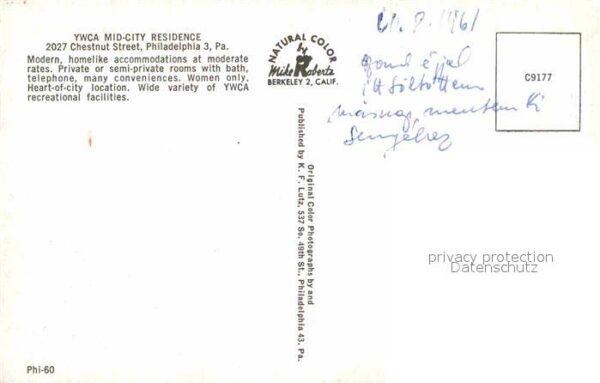 YWCA MID-CITY RESIDENCE
2027 Chestnut Street, Philadelphia 3, Pa.
Modern, homelike accommodations at moderate
rates. Private or semi-private rooms with bath,
telephone, many conveniences. Women only.
Heart-of-city location. Wide variety of YWCA
recreational facilities.
NATURAL COLOR
by
Mike Roberts
BERKELEY 2, CALIF.
1961
éjjel
itt töltöttem
másnap mentem ki
C9177
Original Color Photographs by and
Published by K. F. Lutz, 537 So. 49th St., Philadelphia 43, Pa.
privacy protection
Datenschutz
Phi-60